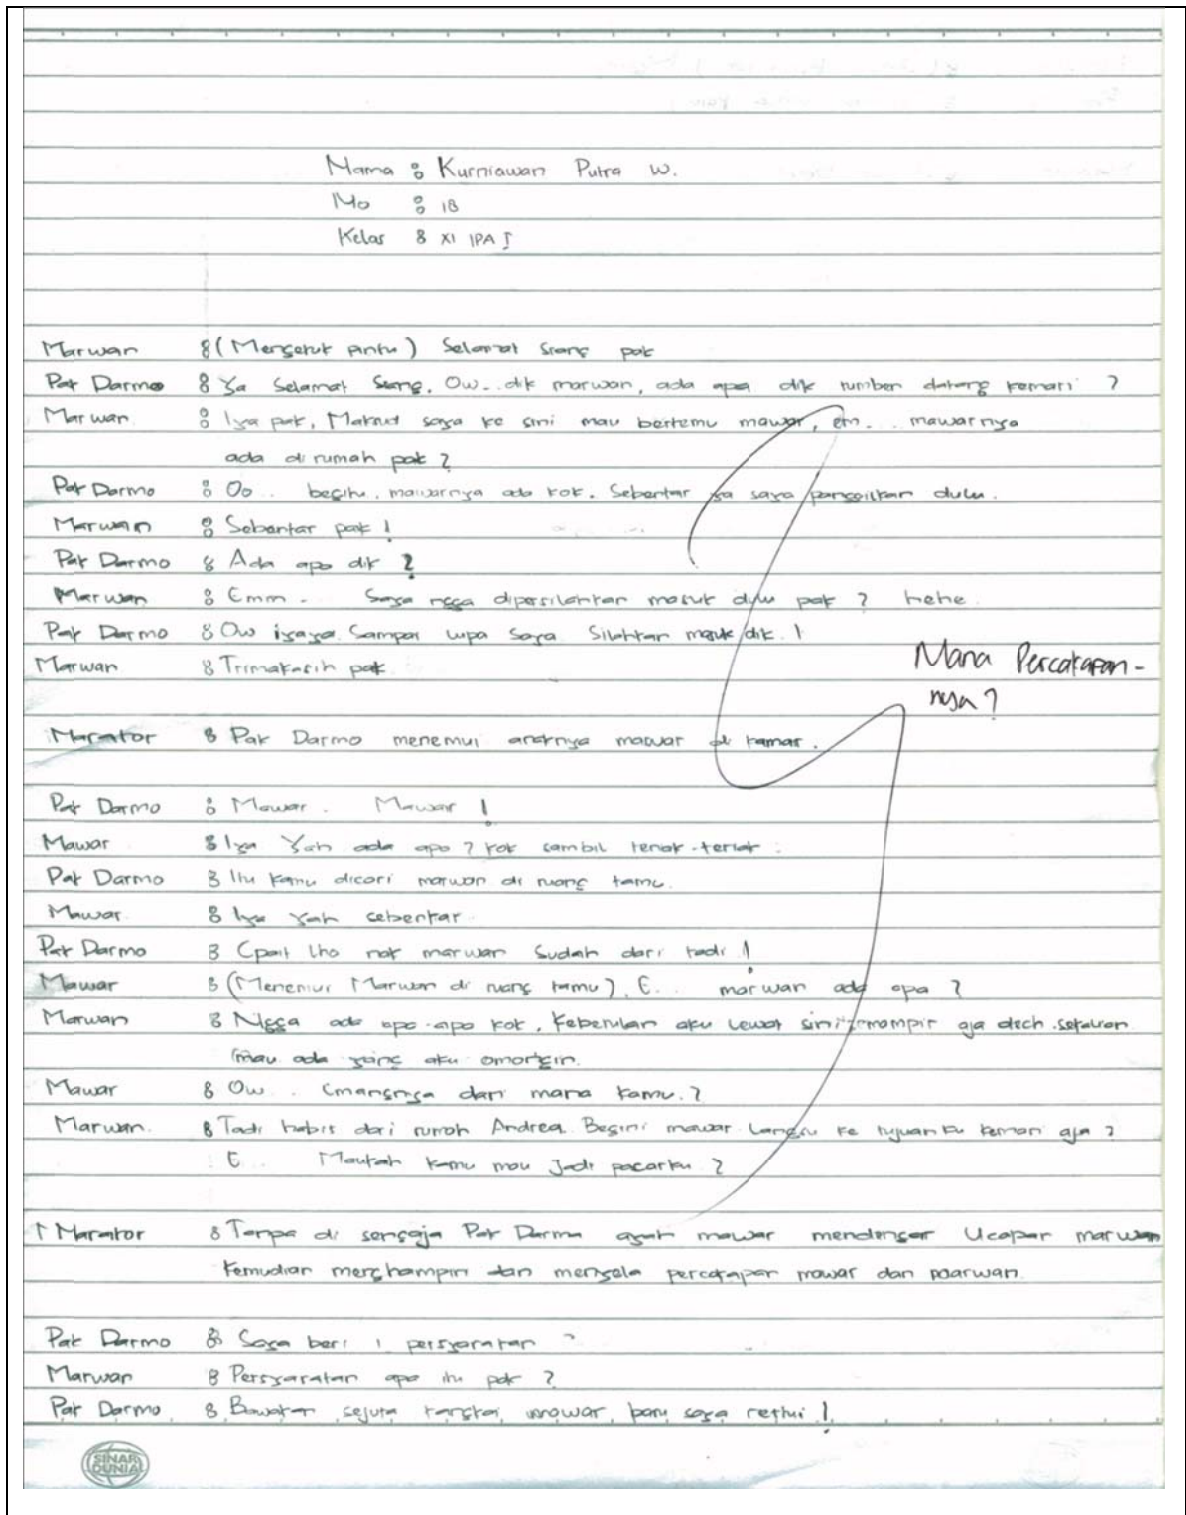 Nama : Kurniawan Putra W.
No : 18
Kelas : XI IPA I
Marwan : (Mengetuk pintu) Selamat siang pak
Pak Darmo : Ya Selamat Siang. Ow.. dik marwan, ada apa dik tumben datang kemari ?
Marwan : Iya pak, Maksud saya ke sini mau bertemu mawar, em... mawarnya
ada di rumah pak ?
Pak Darmo : Oo.. begitu, mawarnya ada kok. Sebentar ya saya panggilkan dulu.
Marwan : Sebentar pak !
Pak Darmo : Ada apa dik ?
Marwan : Emm.. Saya ngga dipersilahkan masuk dulu pak ? hehe
Pak Darmo : Ow iyaya. Sampai lupa saya. Silahkan masuk dik. !
Marwan : Trimakasih pak.
Mana Percakapan-
nya ?
Narator : Pak Darmo menemui anaknya mawar di kamar.
Pak Darmo : Mawar. Mawar !
Mawar : Iya Yah ada apa ? kok sambil teriak-teriak.
Pak Darmo : Itu kamu dicari marwan di ruang tamu.
Mawar : Iya Yah sebentar.
Pak Darmo : Cpait lho nak marwan Sudah dari tadi !
Mawar : (Menemui Marwan di ruang tamu). E... marwan ada apa ?
Marwan : Ngga ada apa-apa kok, Kebetulan aku lewat sini mampir aja dech sekalian
mau ada yang aku omongin.
Mawar : Ow.. Emangnya dari mana kamu. ?
Marwan : Tadi habis dari rumah Andrea. Begini mawar Langsu ke tujuanku kemari aja ?
E... Maukah kamu mau Jadi pacarku ?
Narator : Tanpa di sengaja Pak Darma ayah mawar mendengar Ucapan marwan
Kemudian menghampiri dan menyela percakapan mawar dan maarwan.
Pak Darmo : Saya beri 1 persyaratan
Marwan : Persyaratan apa itu pak ?
Pak Darmo : Bawakan sejuta tangkai mawar, baru saya restui !
SINAR
DUNIA